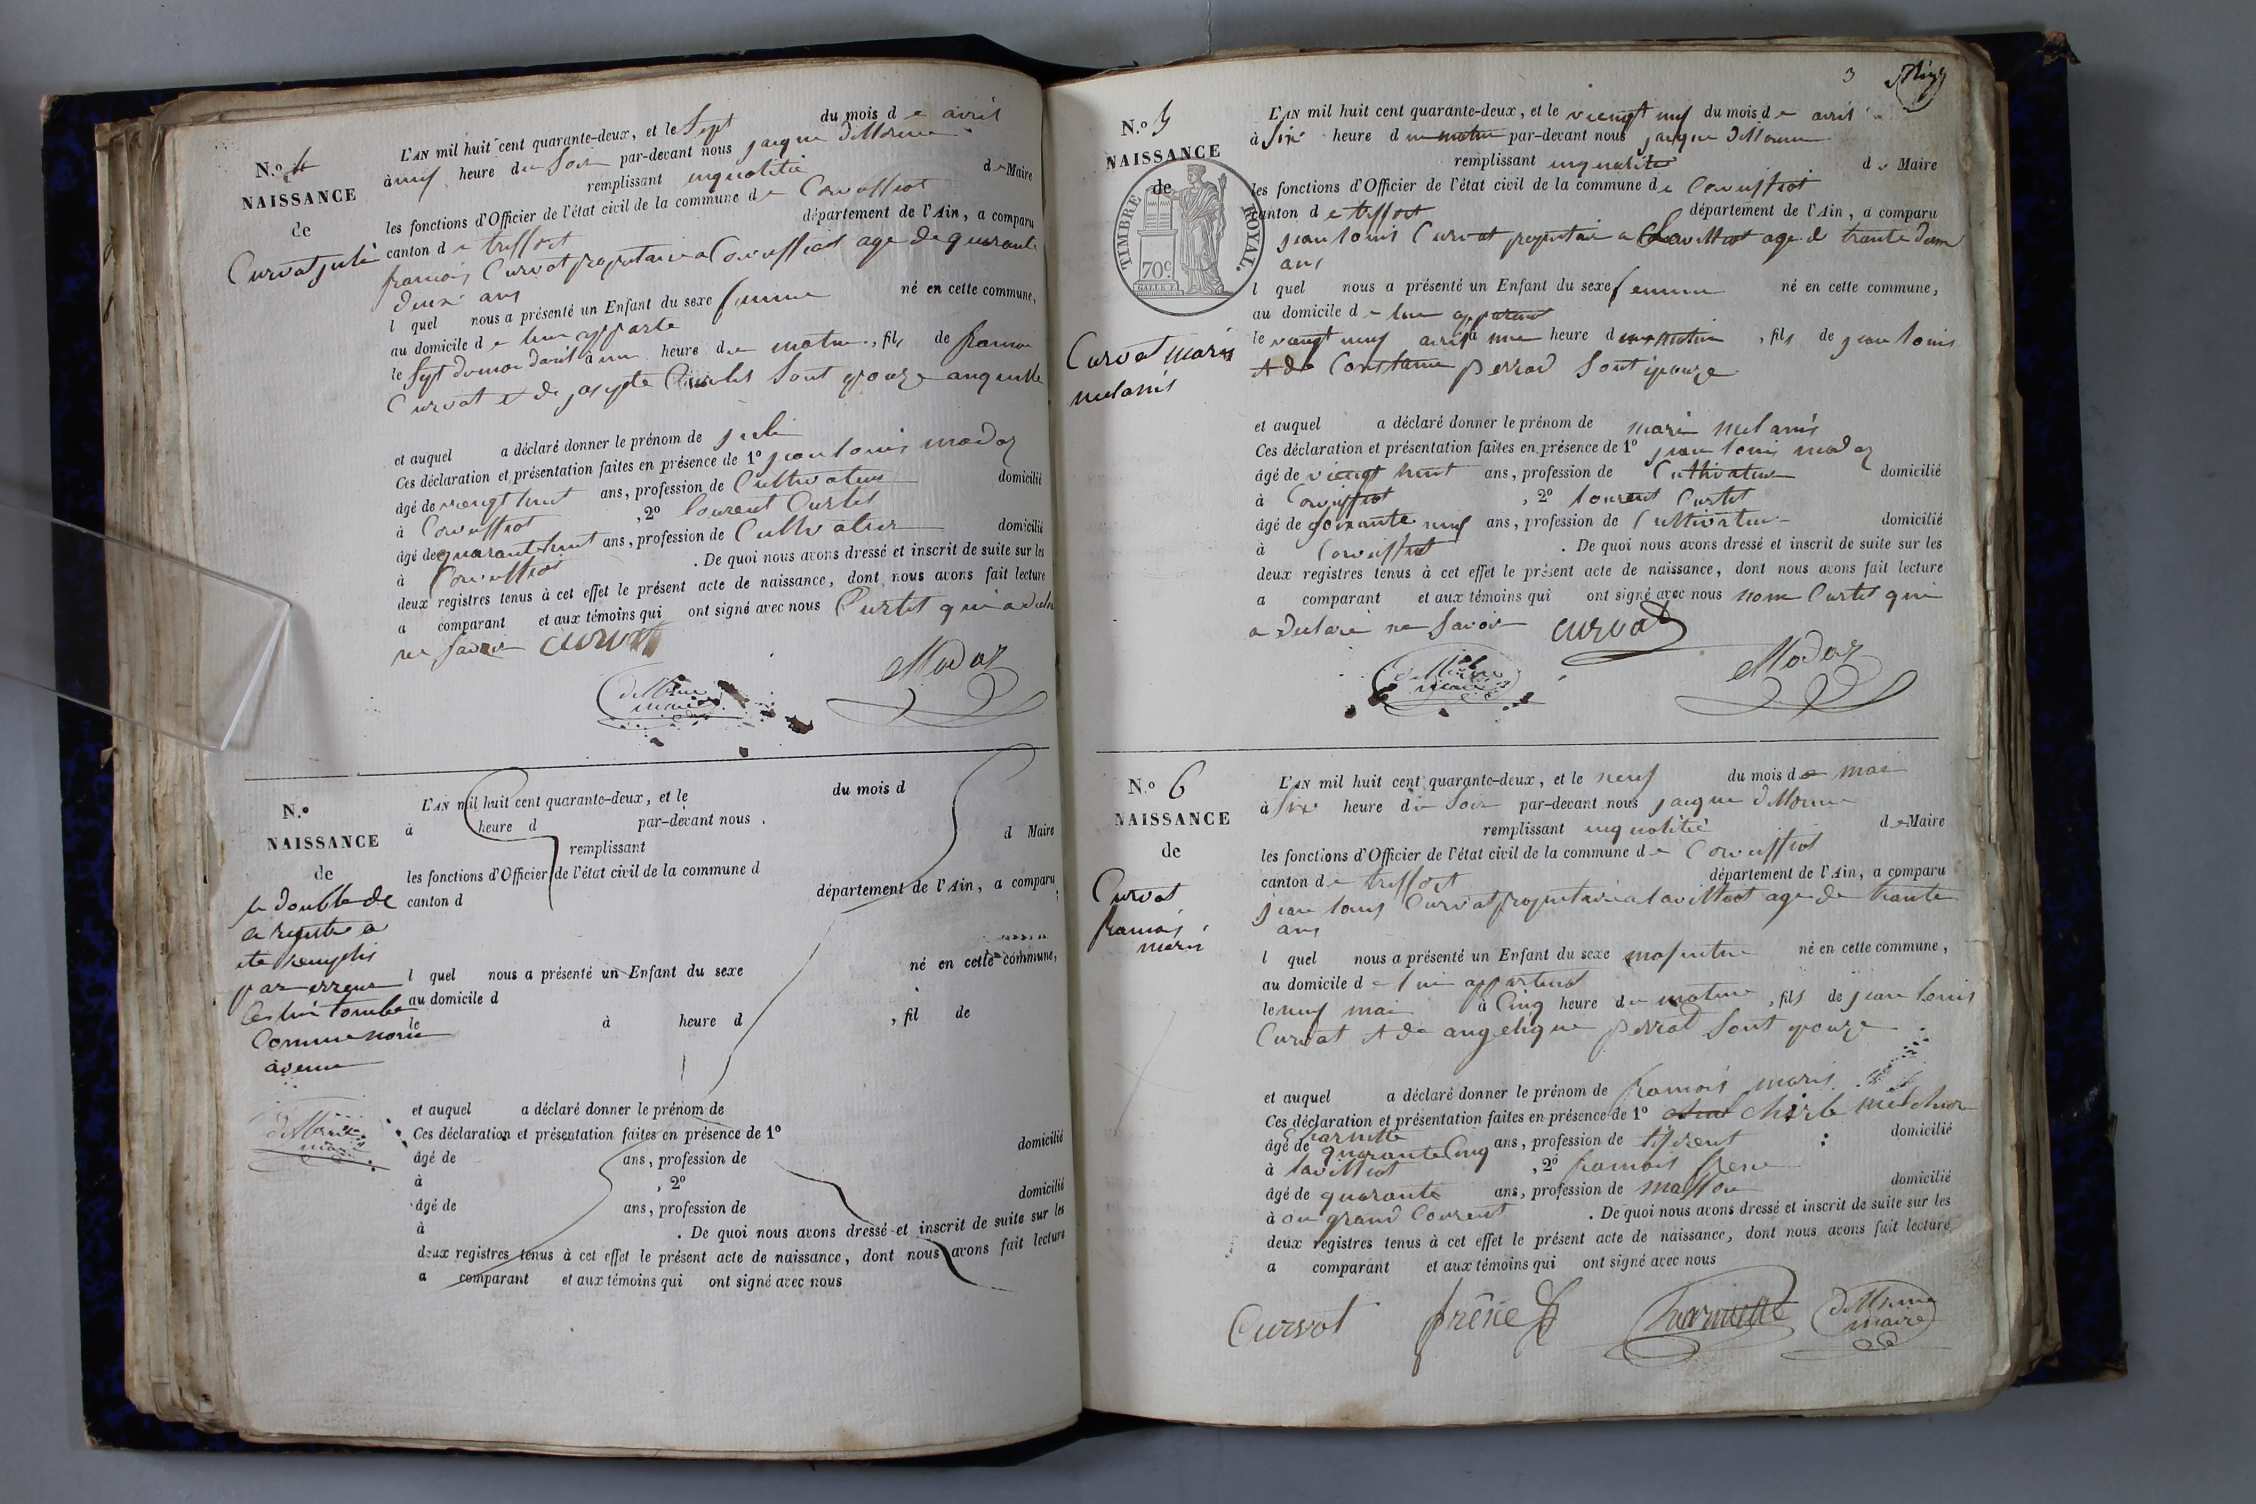 N.º 4
NAISSANCE
de
Curvat juli
L'AN mil huit cent quarante-deux, et le Sept du mois de avril
à neuf heure du Soir par-devant nous jacque
remplissant en qualitié de Maire
les fonctions d'Officier de l'état civil de la commune de Corveissiat
canton de treffort département de l'Ain, a comparu
francois Curvat propriétaire a Corveissiat age de quarante
deux ans
l quel nous a présenté un Enfant du sexe femme né en cette commune,
au domicile de
le Sept du moi davril à une heure de matin, fils de francoi
Curvat et de Sont epouze
et auquel a déclaré donner le prénom de juli
Ces déclaration et présentation faites en présence de 1º jean louis madaz
âgé de veingt huit ans, profession de Cultivateur domicilié
à Corveissiat, 2º lourent Curtet
âgé de quarante huit ans, profession de Cultivateur domicilié
à Corveissiat. De quoi nous avons dressé et inscrit de suite sur les
deux registres tenus à cet effet le présent acte de naissance, dont nous avons fait lecture
a comparant et aux témoins qui ont signé avec nous Curtet qui a declare
ne Savoir curvat
Madaz
maire
N.º
NAISSANCE
de
le double de
ce registre a
ete remplis
par erreur
Celui tombe
Comme nom
avenu
maire
L'AN mil huit cent quarante-deux, et le du mois d
à heure d par-devant nous
remplissant d Maire
les fonctions d'Officier de l'état civil de la commune d
canton d département de l'Ain, a comparu
l quel nous a présenté un Enfant du sexe né en cette commune,
au domicile d
le à heure d , fil de
et auquel a déclaré donner le prénom de
Ces déclaration et présentation faites en présence de 1º
âgé de ans, profession de domicilié
à , 2º
âgé de ans, profession de domicilié
à . De quoi nous avons dressé et inscrit de suite sur les
deux registres tenus à cet effet le présent acte de naissance, dont nous avons fait lecture
a comparant et aux témoins qui ont signé avec nous
3
N.º 5
NAISSANCE
de
TIMBRE ROYAL.
70c
Curvat marie
melanis
L'AN mil huit cent quarante-deux, et le veingt neuf du mois de avril
à Six heure du matin par-devant nous jacque
remplissant en qualité de Maire
les fonctions d'Officier de l'état civil de la commune de Corveissiat
canton de treffort département de l'Ain, a comparu
jean louis Curvat propriétaire a Lavilliat age de trante deux
ans
l quel nous a présenté un Enfant du sexe femme né en cette commune,
au domicile de
le veingt neuf avril à une heure du matin, fils de jean louis
et de Constance perrad Sont epouze
et auquel a déclaré donner le prénom de marie melanis
Ces déclaration et présentation faites en présence de 1º jean louis madaz
âgé de veingt huit ans, profession de Cultivateur domicilié
à Corveissiat, 2º lourent Curtet
âgé de soixante neuf ans, profession de Cultivateur domicilié
à Corveissiat. De quoi nous avons dressé et inscrit de suite sur les
deux registres tenus à cet effet le présent acte de naissance, dont nous avons fait lecture
a comparant et aux témoins qui ont signé avec nous nom Curtet qui
a declare ne Savoir curvat
Madaz
maire
N.º 6
NAISSANCE
de
Curvat
francois
maris
L'AN mil huit cent quarante-deux, et le neuf du mois de mai
à Six heure du Soir par-devant nous jacque
remplissant en qualitié de Maire
les fonctions d'Officier de l'état civil de la commune de Corveissiat
canton de treffort département de l'Ain, a comparu
jean louis Curvat propriétaire a lavilliat age de trante
ans
l quel nous a présenté un Enfant du sexe masculin né en cette commune,
au domicile de
le neuf mai à Cinq heure du matin, fils de jean louis
Curvat et de angelique perrat Sont epouze
et auquel a déclaré donner le prénom de francois maris
Ces déclaration et présentation faites en présence de 1º charle melchior
Charnitte
âgé de quarante Cinq ans, profession de domicilié
à lavilliat, 2º francois frene
âgé de quarante ans, profession de masson domicilié
à au grand Courent. De quoi nous avons dressé et inscrit de suite sur les
deux registres tenus à cet effet le présent acte de naissance, dont nous avons fait lecture
a comparant et aux témoins qui ont signé avec nous
Curvat frêne maire